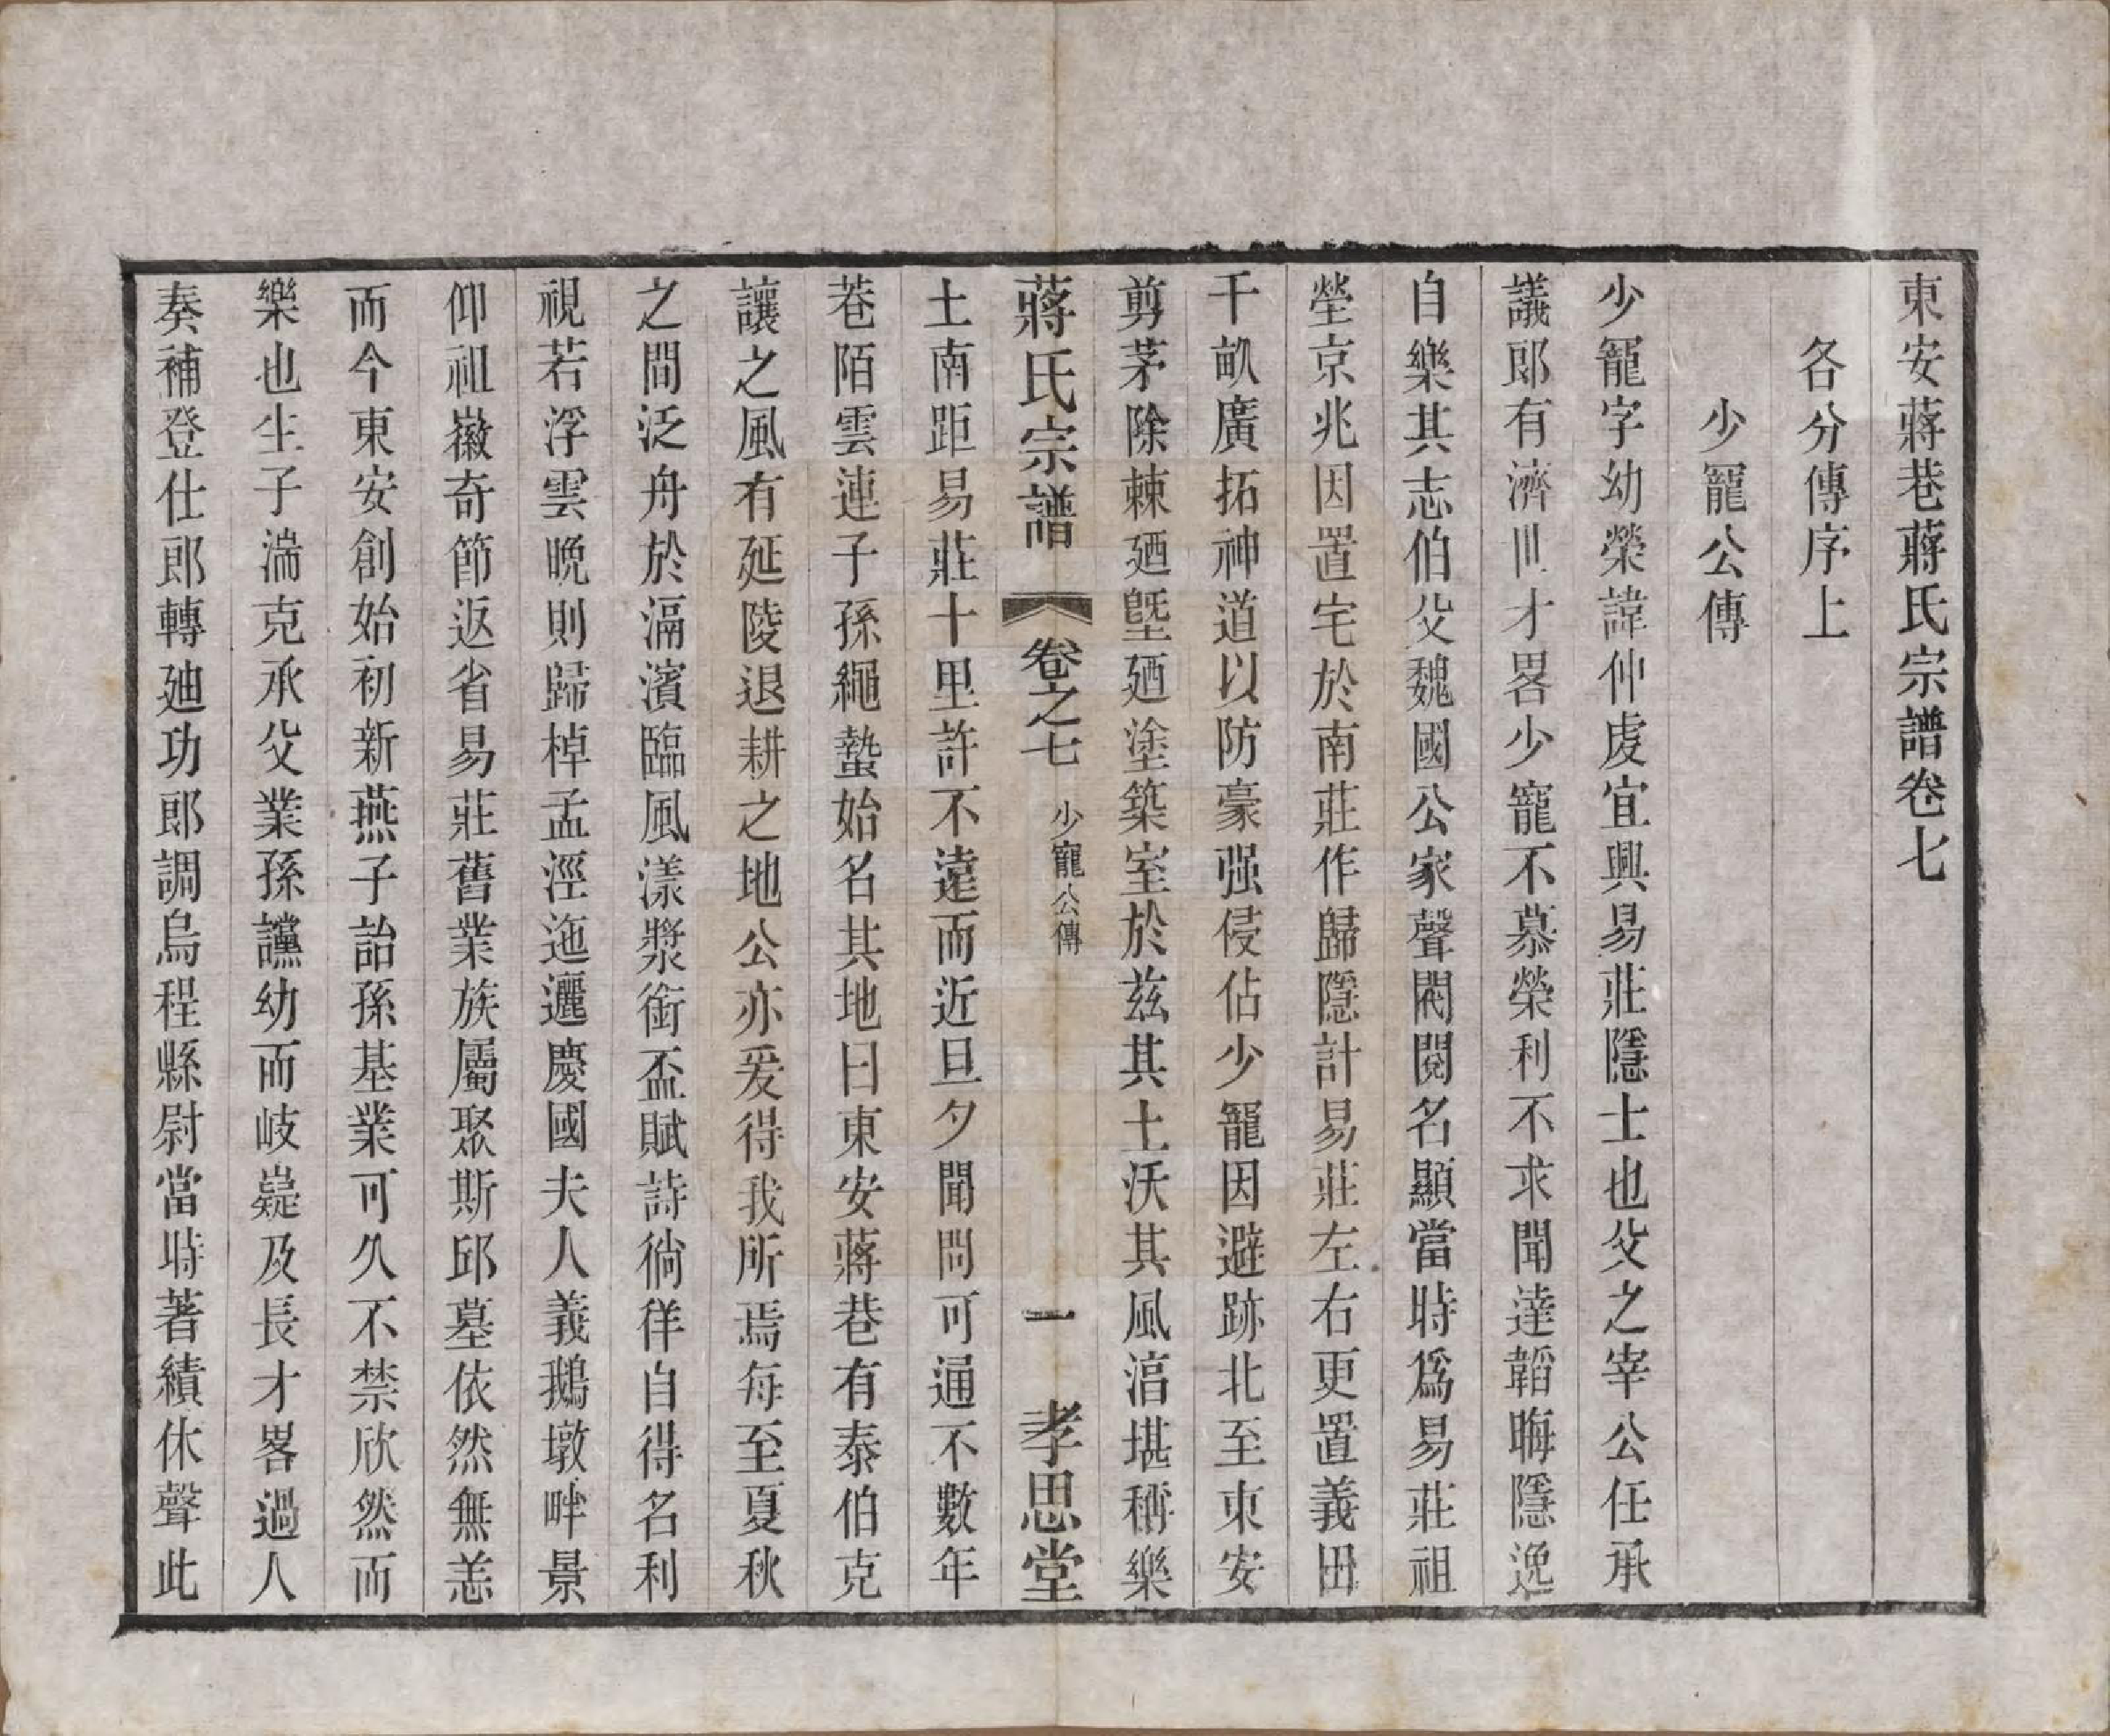 東安蔣巷蔣氏宗譜卷七
各分傳序上
少寵公傳
少寵字幼榮諱仲虔宜興易莊隱士也父之宰公任承
議郎有濟世才畧少寵不慕榮利不求聞達韜晦隱逸
自樂其志伯父魏國公家聲閥閱名顯當時爲易莊祖
塋京兆因置宅於南莊作歸隱計易莊左右更置義田
千畝廣拓神道以防豪强侵佔少寵因避跡北至東安
剪茅除棘廼墍廼塗築室於茲其土沃其風湻堪稱樂
蔣氏宗譜 卷之七 少寵公傳 一 孝思堂
土南距易莊十里許不遠而近旦夕聞問可通不數年
巷陌雲連子孫繩蟄始名其地曰東安蔣巷有泰伯克
讓之風有延陵退耕之地公亦爰得我所焉每至夏秋
之間泛舟於滆濱臨風漾漿銜盃賦詩徜徉自得名利
視若浮雲晩則歸棹孟涇迤邐慶國夫人義鵝墩畔景
仰祖徽奇節返省易莊舊業族屬聚斯邱墓依然無恙
而今東安創始初新燕子詒孫基業可久不禁欣然而
樂也生子湍克承父業孫讜幼而岐嶷及長才畧過人
奏補登仕郎轉廸功郎調烏程縣尉當時著績休聲此